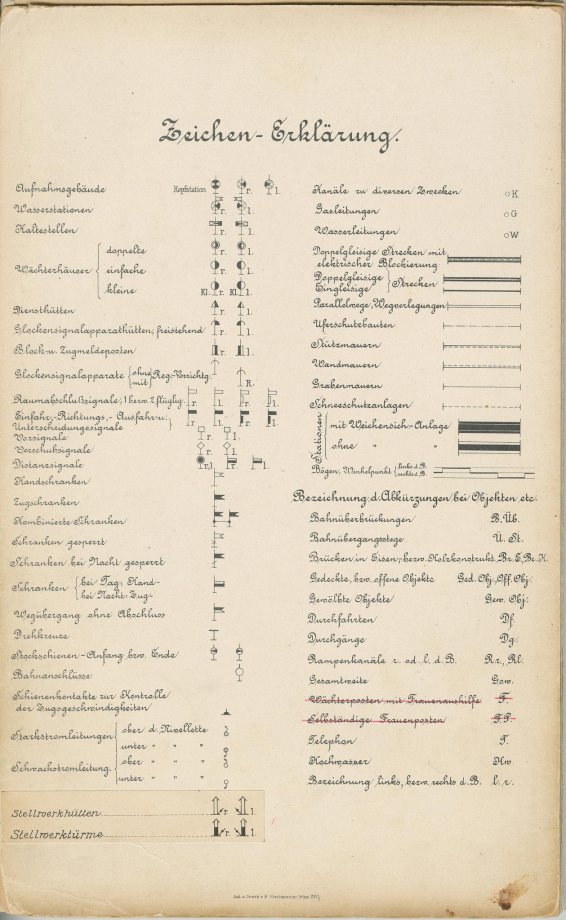 Zeichen-Erklärung.
Aufnahmsgebäude Kopfstation r. l.
Wasserstationen r. l.
Haltestellen r. l.
Wächterhäuser
doppelte r. l.
einfache r. l.
kleine Kl. r. Kl. l.
Diensthütten r. l.
Glockensignalapparathütten, freistehend r. l.
Block-u. Zugmeldeposten r. l.
Glockensignalapparate ohne mit Reg.-Vorrichtg. R.
Raumabschlußsignale, 1 bezw. 2 flüglig. r. l. r. l.
Einfahr-, Richtungs-, Ausfahr-u.
Unterscheidungssignale r. l. r. l.
Vorsignale r. l.
Verschubsignale r. l.
Distanzsignale r. l.
Handschranken
Zugschranken
Kombinierte Schranken
Schranken gesperrt
Schranken bei Nacht gesperrt
Schranken bei Tag: Hand-
bei Nacht: Zug-
Wegübergang ohne Abschluss
Drehkreuze
Stockschienen-Anfang bzw. Ende
Bahnanschlüsse
Schienenkontakte zur Kontrolle
der Zugsgeschwindigkeiten
Starkstromleitungen ober d. Nivellette
unter " " "
Schwachstromleitung. ober " " "
unter " " "
Stellwerkhütten r. l.
Stellwerktürme r. l.
Kanäle zu diversen Zwecken K
Gasleitungen G
Wasserleitungen W
Doppelgleisige Strecken mit
elektrischer Blockierung
Doppelgleisige
Eingleisige Strecken
Parallelwege, Wegverlegungen
Uferschutzbauten
Stützmauern
Wandmauern
Grabenmauern
Schneeschutzanlagen
Stationen
mit Weichensich-Anlage
ohne " "
Bögen, Winkelpunkt links d. B.
rechts d. B.
Bezeichnung d. Abkürzungen bei Objekten etc.
Bahnüberbrückungen B. Üb.
Bahnübergangstege Ü. St.
Brücken in Eisen-, bezw. Holzkonstrukt. Br. E, Br. H.
Gedeckte, bzw. offene Objekte Ged. Obj., Off. Obj.
Gewölbte Objekte Gew. Obj.
Durchfahrten Df.
Durchgänge Dg.
Rampenkanäle r. od. l. d. B. R r., R l.
Gesamtweite Gsw.
Wächterposten mit Frauenaushilfe F.
Selbständige Frauenposten F.P.
Telephon T.
Hochwasser Hw.
Bezeichnung links, bezw. rechts d. B. l. r.